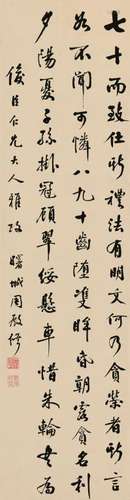 七十而致仕於禮法有明文何乃貪榮者於言
如不聞可憐八九十齒墮雙眸昏朝露貪名利
夕陽憂子孫掛冠顧翠緌懸車惜朱輪
俊臣仁兄大人雅政 曙城周殿修